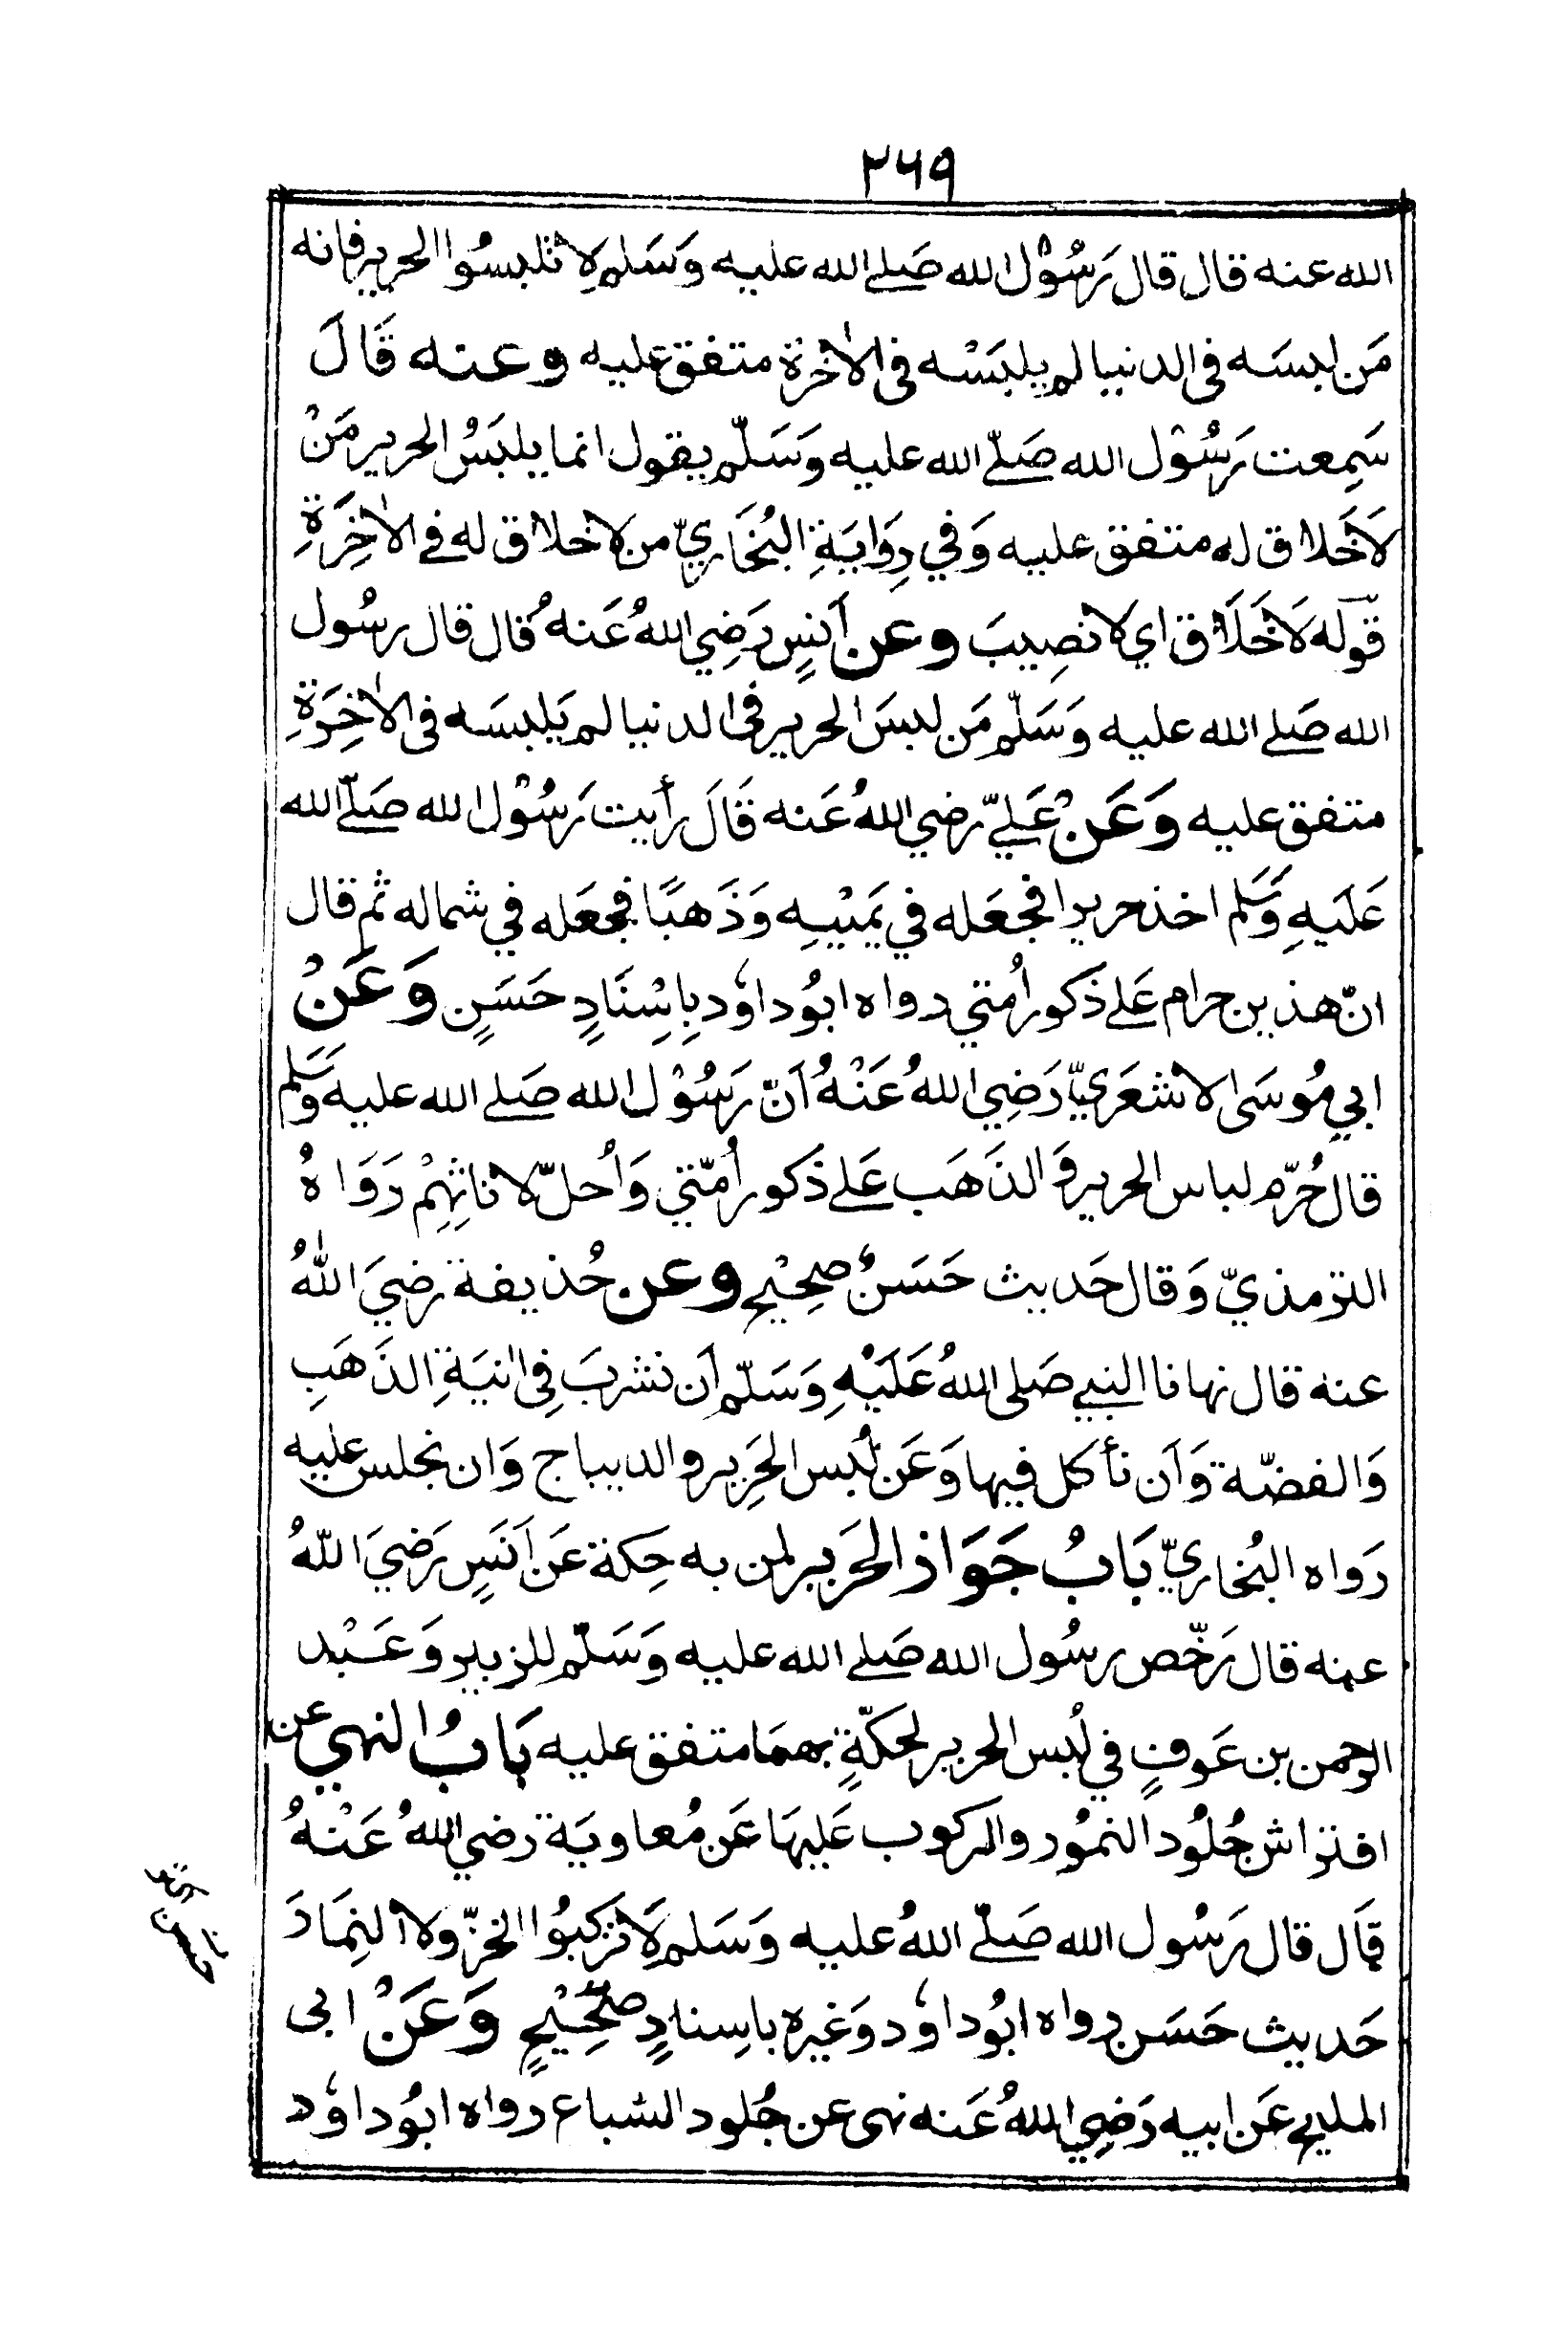 ٢٦٩
الله عنه قال قال رَسُوْل الله صَلے الله عليه وَسَلم لا تلبسُوا الحرير فانه
مَن لبسَه في الدنيا لم يلبَسْه في الاٰخرة متفق عليه وعنه قَالَ
سَمِعت رَسُوْل الله صَلّے الله عليه وَسَلّم يقول انما يلبَسُ الحرير مَنْ
لاَ خَلاق له متفق عليه وَفي رِوَايَةِ البُخَاريّ من لا خلاق له في الاٰخِرَةِ
قوله لاَ خَلَاق اي لا نصِيبَ وعن أنسٍ رَضِي اللهُ عَنهُ قال قال رسُول
الله صَلے الله عليه وَسَلّم مَن لبسَ الحرير في الدنيا لم يَلبسَه في الاٰخِرَةِ
متفق عليه وَعَنْ عَليّ رضي اللهُ عَنه قَالَ رأيت رَسُوْل الله صَلّے الله
عَلَيهِ وَسَلم اخذ حريرا فجعَله في يَمينِه وَذَهبًا فجعَله في شماله ثم قال
انّ هذين حرام عَلے ذَكور اُمتي رواه ابُو داوٗد بِاِسْنَادٍ حَسَنٍ وَعَنْ
ابي مُوسَى الاشعَريّ رَضِي اللهُ عَنْهُ اَنّ رَسُوْل الله صَلے الله عليه وَسَلم
قال حُرّم لباس الحرير وَالذَهَب عَلے ذَكور اُمّتي وَاُحلّ لاناثِهِمْ رَوَاهُ
الترمذيّ وَقال حَديث حَسَنٌ صحِيْح وعن حُذيفة رضيَ اللهُ
عنه قال نهانا النبي صَلى اللهُ عَلَيْهِ وَسَلّم اَن نشربَ فِي اٰنيَةِ الذَهَبِ
وَالفضّة وَاَن نأكل فيها وَعَن لُبس الحَرِير والديباج وَان نجلس عليه
رَواه البُخاريّ بَابُ جَوَاز الحَرير لمن به حِكة عَن اَنَسٍ رَضيَ اللهُ
عنه قال رَخّص رسُول الله صَلے الله عليه وَسَلّم للزبير وَعَبْد
الرحمن بن عَوفٍ في لُبس الحرير لحكّةٍ بهمَا متفق عليه بَابُ النهي عن
افتراش جُلُود النمُور والركوب عَليهَا عَن مُعاويَة رضي اللهُ عَنْهُ
قَال قال رَسُول الله صَلّے اللهُ عليه وَسَلم لاَ تركبُوا الخزّ ولا النِمَارَ
حَديث حَسَن رواه ابُو داوٗد وَغيره باسِنادٍ صَحِيْحٍ وَعَنْ ابي
المليح عَن ابيه رَضِي اللهُ عَنه نهى عن جُلود السباع رواه ابُو داوٗد